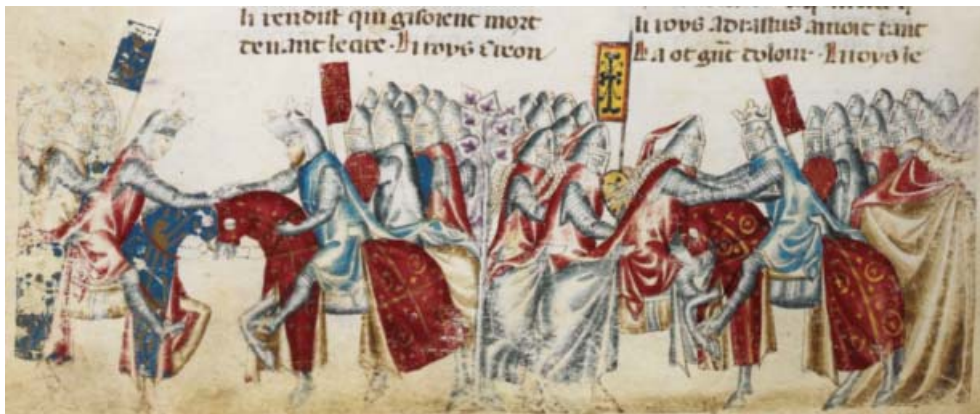 li rendist qui gisoient mort
devant le cite · Li roys Creon
li roys adrastus amoit tant
En ot grant dolour · Li roys le